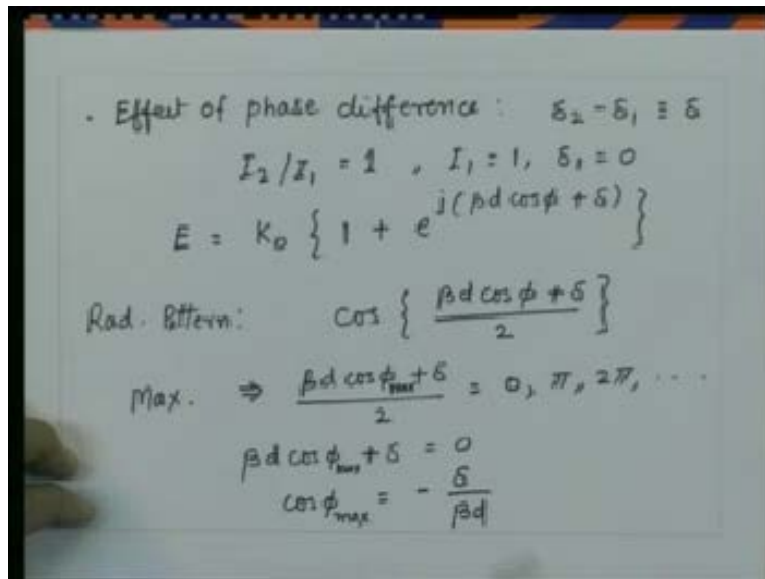 . Effect of phase difference : δ₂ - δ₁ ≡ δ
I₂/I₁ = 1 , I₁ = 1, δ₁ = 0
E = K₀ { 1 + e^{j(βd cosφ + δ)} }
Rad. Pattern: cos { (βd cosφ + δ)/2 }
Max. ⇒ (βd cosφ_max + δ)/2 = 0, π, 2π, ....
βd cosφ_max + δ = 0
cosφ_max = - δ/βd